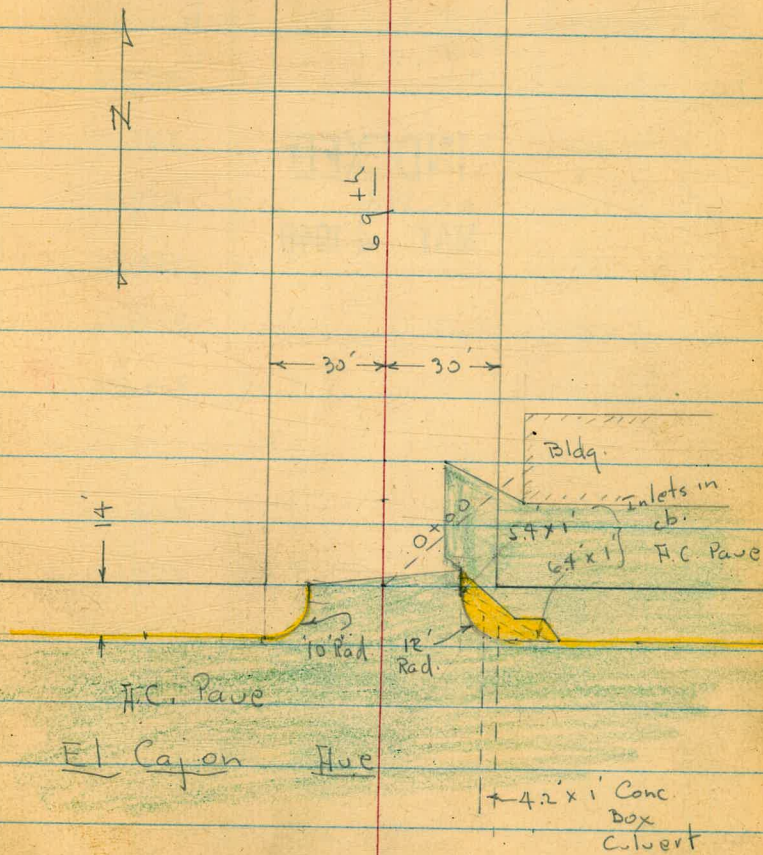 N
69th
30' 30'
Bldg.
14'
Inlets in
cb.
0+00
5.4 x 1'
6.4' x 1'
A.C. Pave
10' Rad
12'
Rad.
A.C. Pave
El Cajon Ave
4.2' x 1' Conc.
Box
Culvert